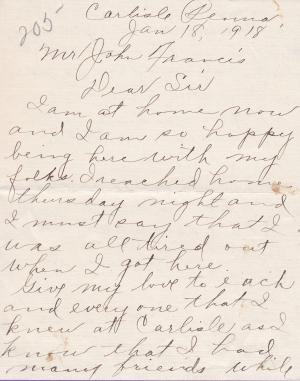 205
Carlisle Penna.
Jan 18, 1918.
Mr John Francis
Dear Sir
I am at home now
and I am so happy
being here with my
folks. I reached home
Thursday night and
I must say that I
was all tired out
when I got here.
Give my love to each
and every one that I
knew at Carlisle as I
know that I had
many friends while